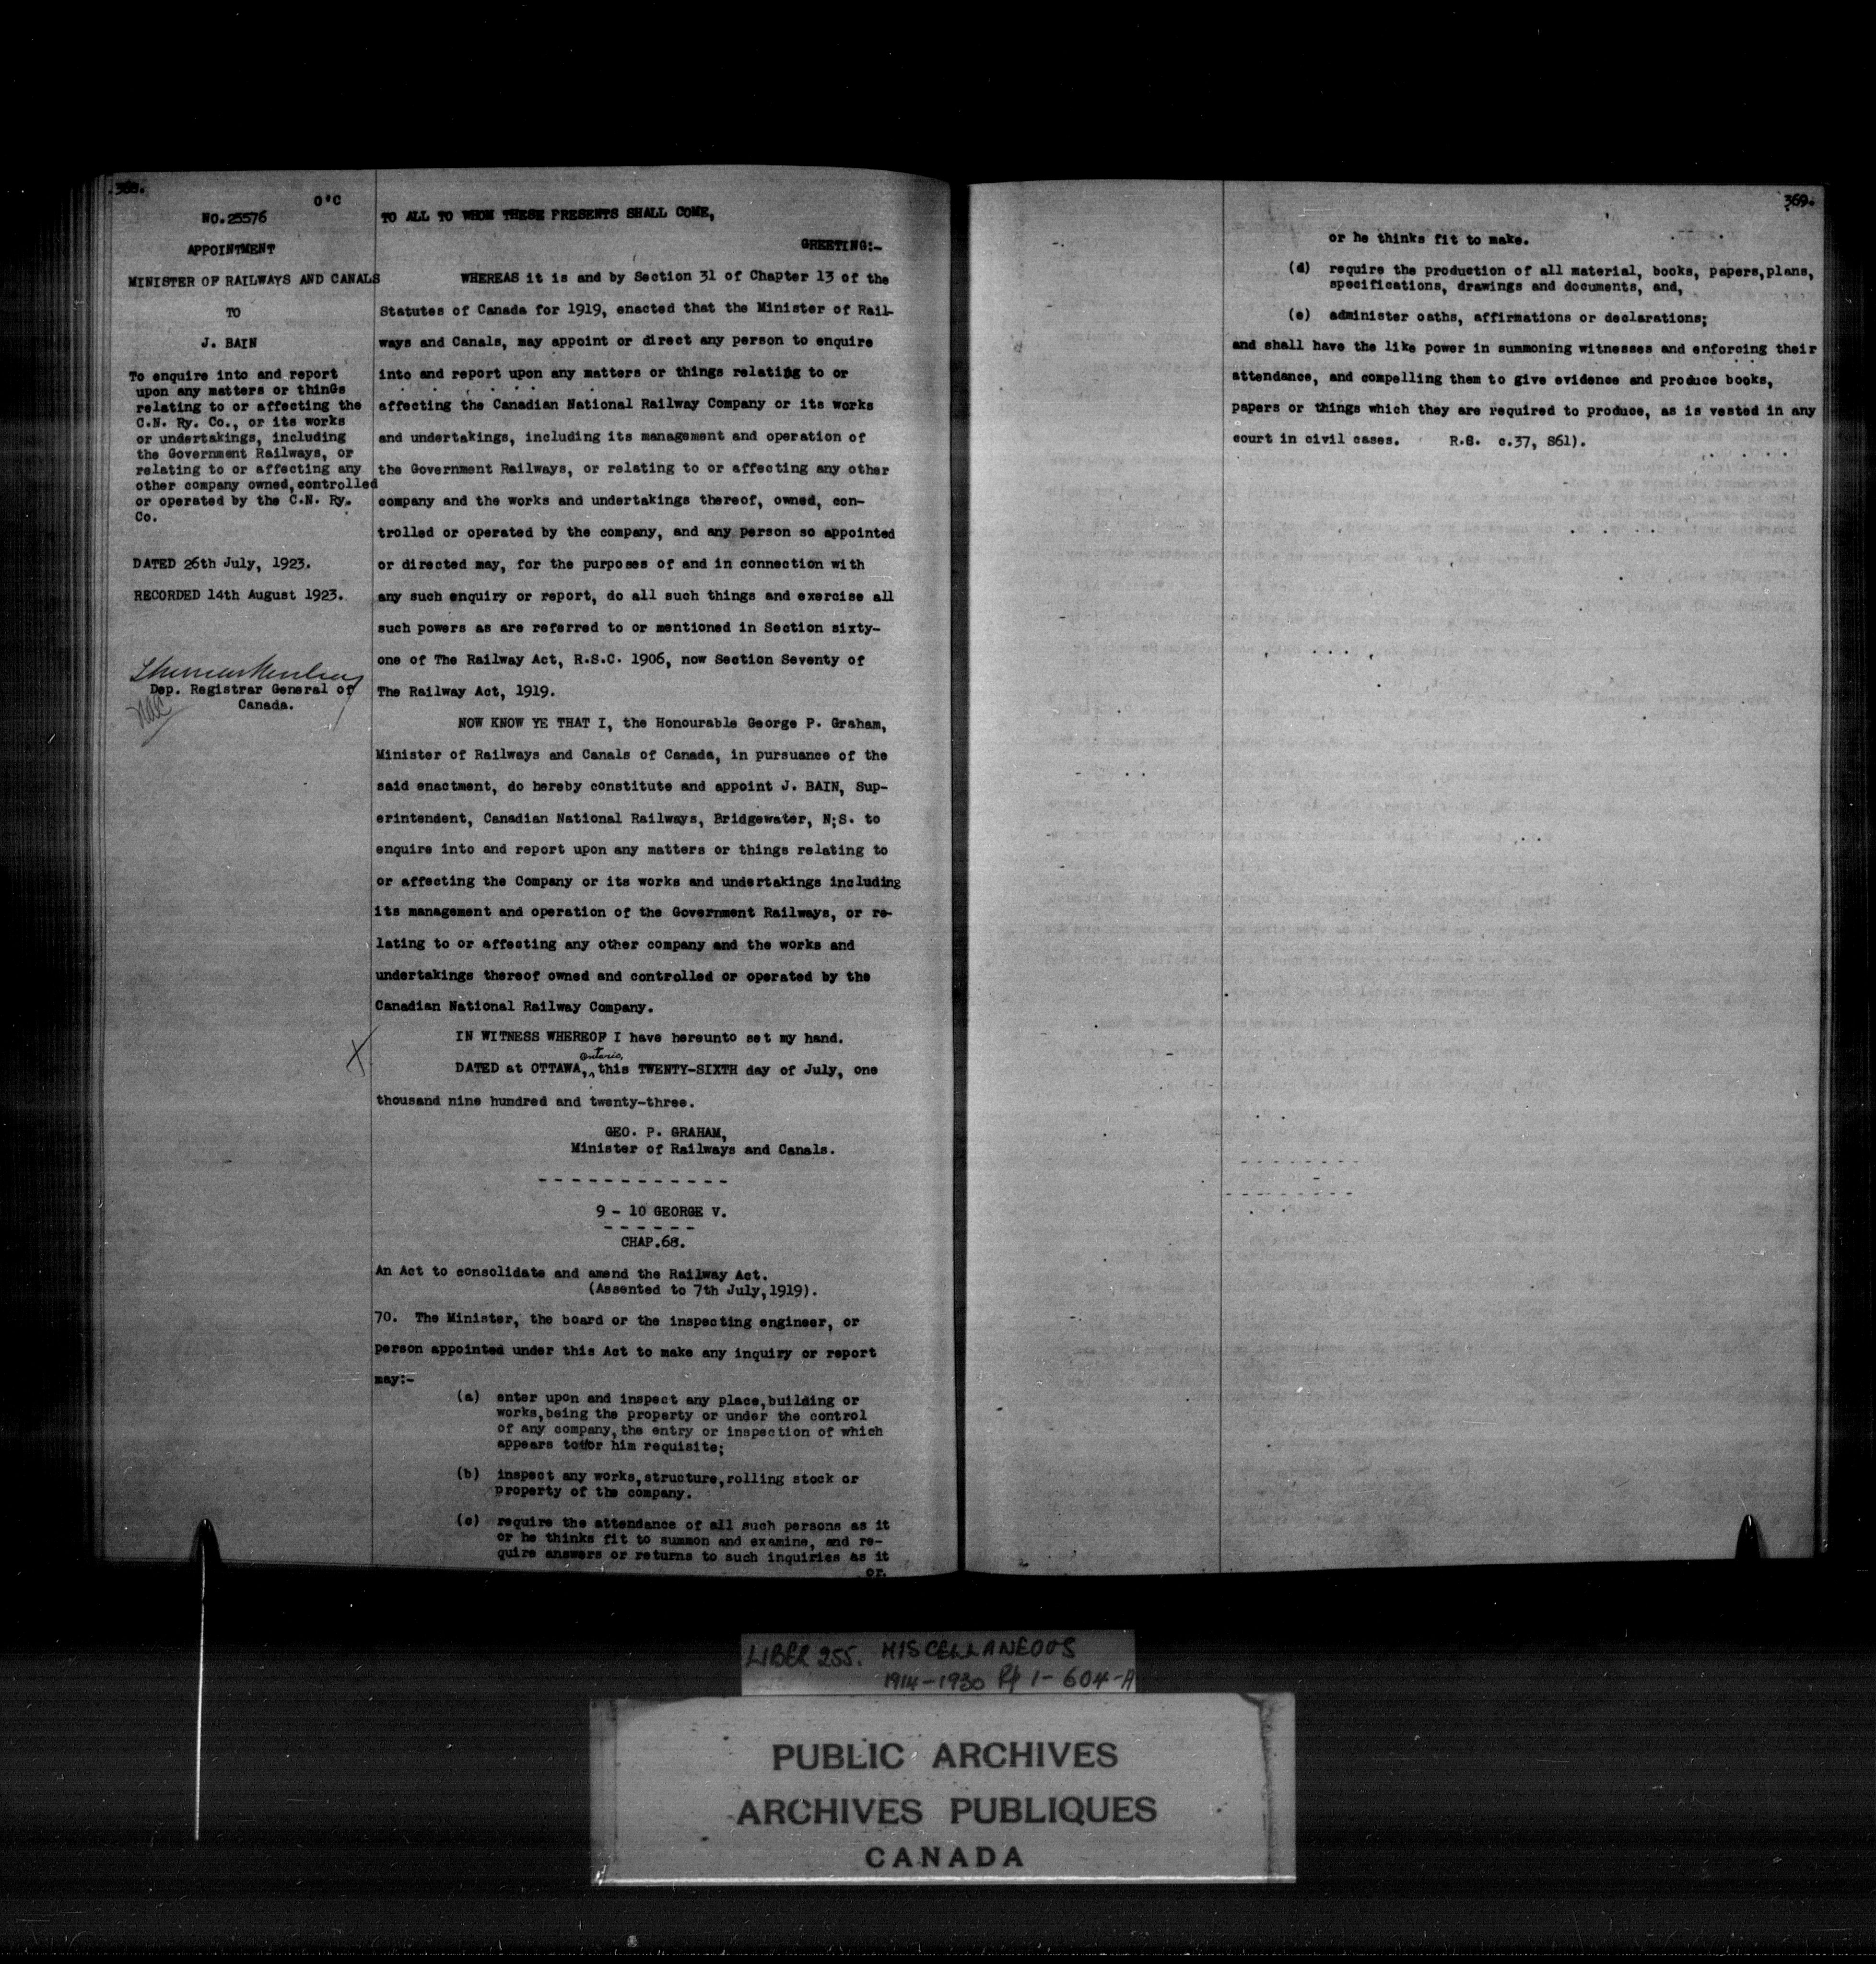 368.
O'C
NO.25576
APPOINTMENT
MINISTER OF RAILWAYS AND CANALS
TO
J. BAIN
To enquire into and report
upon any matters or thinGs
relating to or affecting the
C.N. Ry. Co., or its works
or undertakings, including
the Government Railways, or
relating to or affecting any
other company owned,controlled
or operated by the C.N. Ry.
Co.
DATED 26th July, 1923.
RECORDED 14th August 1923.
Dep. Registrar General of
Canada.
TO ALL TO WHOM THESE PRESENTS SHALL COME,
GREETING:-
WHEREAS it is and by Section 31 of Chapter 13 of the
Statutes of Canada for 1919, enacted that the Minister of Rail-
ways and Canals, may appoint or direct any person to enquire
into and report upon any matters or things relating to or
affecting the Canadian National Railway Company or its works
and undertakings, including its management and operation of
the Government Railways, or relating to or affecting any other
company and the works and undertakings thereof, owned, con-
trolled or operated by the company, and any person so appointed
or directed may, for the purposes of and in connection with
any such enquiry or report, do all such things and exercise all
such powers as are referred to or mentioned in Section sixty-
one of The Railway Act, R.S.C. 1906, now Section Seventy of
The Railway Act, 1919.
NOW KNOW YE THAT I, the Honourable George P. Graham,
Minister of Railways and Canals of Canada, in pursuance of the
said enactment, do hereby constitute and appoint J. BAIN, Sup-
erintendent, Canadian National Railways, Bridgewater, N;S. to
enquire into and report upon any matters or things relating to
or affecting the Company or its works and undertakings including
its management and operation of the Government Railways, or re-
lating to or affecting any other company and the works and
undertakings thereof owned and controlled or operated by the
Canadian National Railway Company.
IN WITNESS WHEREOF I have hereunto set my hand.
X
Ontario,
DATED at OTTAWA, this TWENTY-SIXTH day of July, one
thousand nine hundred and twenty-three.
GEO. P. GRAHAM,
Minister of Railways and Canals.
- - - - - - - - - - - -
9 - 10 GEORGE V.
- - - - - -
CHAP.68.
An Act to consolidate and amend the Railway Act.
(Assented to 7th July,1919).
70. The Minister, the board or the inspecting engineer, or
person appointed under this Act to make any inquiry or report
may:-
(a) enter upon and inspect any place,building or
works,being the property or under the control
of any company,the entry or inspection of which
appears to or him requisite;
(b) inspect any works,structure,rolling stock or
property of the company.
(c) require the attendance of all such persons as it
or he thinks fit to summon and examine, and re-
quire answers or returns to such inquiries as it
or.
369.
or he thinks fit to make.
(d) require the production of all material, books, papers,plans,
specifications, drawings and documents, and,
(e) administer oaths, affirmations or declarations;
and shall have the like power in summoning witnesses and enforcing their
attendance, and compelling them to give evidence and produce books,
papers or things which they are required to produce, as is vested in any
court in civil cases. R.S. c.37, S61).
LIBER 255. MISCELLANEOUS
1914-1930 Pp 1-604-A
PUBLIC ARCHIVES
ARCHIVES PUBLIQUES
CANADA